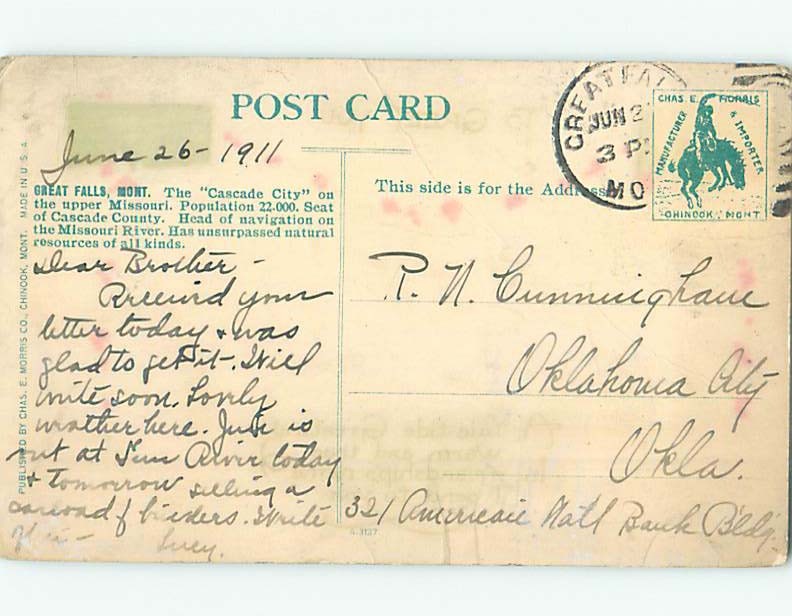 POST CARD
June 26 - 1911
GREAT FALLS, MONT. The "Cascade City" on
the upper Missouri. Population 22-000. Seat
of Cascade County. Head of navigation on
the Missouri River. Has unsurpassed natural
resources of all kinds.
Dear Brother -
Received your
letter today + was
glad to get it. Will
write soon. Lovely
weather here. is
out at Sun River today
+ tomorrow selling a
carload of binders. Write
PUBLISHED BY CHAS. E. MORRIS CO., CHINOOK, MONT. MADE IN U.S.A.
GREAT FAL
JUN 2
3 P
MO
CHAS. E. MORRIS
MANUFACTURER & IMPORTER
CHINOOK, MONT
This side is for the Address
R. N. Cunningham
Oklahoma City
Okla.
321 American Natl Bank Bldg.